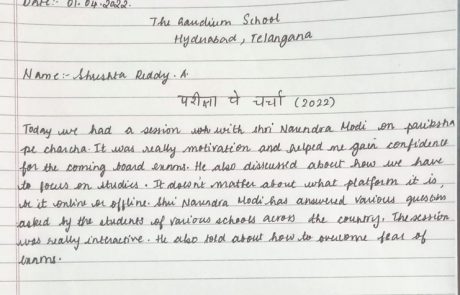 Date:- 01.04.2022.
The Gaudium School
Hyderabad, Telangana
Name:- Shreshta Reddy.A
परीक्षा पे चर्चा (2022)
Today we had a session with shri Narendra Modi on pariksha
pe charcha. It was really motivation and helped me gain confidence
for the coming board exams. He also discussed about how we have
to focus on studies. It doesn't matter about what platform it is,
be it online or offline. Shri Narendra Modi has answered various questions
asked by the students of various schools across the country. The session
was really interactive. He also told about how to overcome fear of
exams.